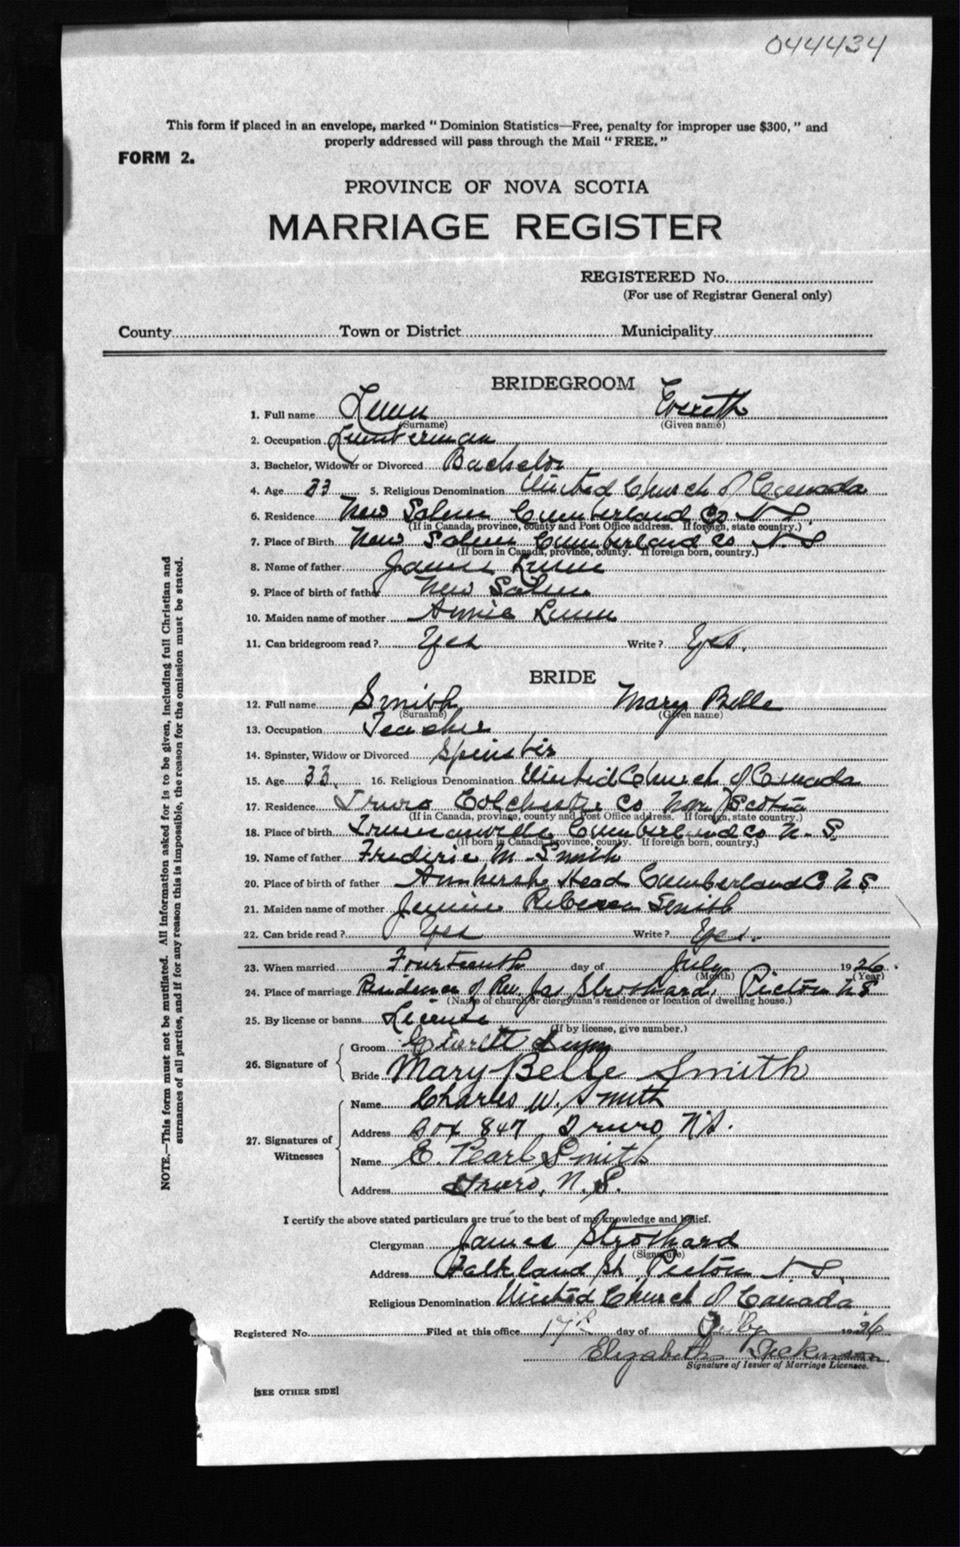 044434
This form if placed in an envelope, marked " Dominion Statistics—Free, penalty for improper use $300, " and
properly addressed will pass through the Mail "FREE."
FORM 2.
PROVINCE OF NOVA SCOTIA
MARRIAGE REGISTER
REGISTERED No.
(For use of Registrar General only)
County Town or District Municipality
BRIDEGROOM
1. Full name Lunn Everett
(Surname) (Given name)
2. Occupation Lumberman
3. Bachelor, Widower or Divorced Bachelor
4. Age 33 5. Religious Denomination United Church of Canada
6. Residence New Salem Cumberland Co N S
(If in Canada, province, county and Post Office address. If foreign, state country.)
7. Place of Birth New Salem Cumberland Co N S
(If born in Canada, province, county. If foreign born, country.)
8. Name of father James Lunn
9. Place of birth of father New Salem
10. Maiden name of mother Annie Lunn
11. Can bridegroom read? Yes Write? Yes.
BRIDE
12. Full name Smith Mary Belle
(Surname) (Given name)
13. Occupation Teacher
14. Spinster, Widow or Divorced Spinster
15. Age 33 16. Religious Denomination United Church of Canada
17. Residence Truro Colchester Co Nova Scotia
(If in Canada, province, county and Post Office address. If foreign, state country.)
18. Place of birth Truemanville Cumberland Co N. S.
(If born in Canada, province, county. If foreign born, country.)
19. Name of father Frederic M. Smith
20. Place of birth of father Amherst Head Cumberland Co N S
21. Maiden name of mother Jennie Rebecca Smith
22. Can bride read? Yes Write? Yes.
23. When married Fourteenth day of July 1926.
(Month) (Year)
24. Place of marriage Residence of Rev. Jas Strothard, Pictou N S
(Name of church or clergyman's residence or location of dwelling house.)
25. By license or banns License
(If by license, give number.)
26. Signature of
Groom Everett Lunn
Bride Mary Belle Smith
27. Signatures of Witnesses
Name Charles W. Smith
Address Box 847 Truro N.S.
Name E. Pearl Smith
Address Truro, N. S.
I certify the above stated particulars are true to the best of my knowledge and belief.
Clergyman James Strothard
(Signature)
Address Falkland St Pictou N S
Religious Denomination United Church of Canada
Registered No. Filed at this office 17th day of July 1926
Elizabeth Dickinson
Signature of Issuer of Marriage Licenses.
[SEE OTHER SIDE]
NOTE.—This form must not be mutilated. All information asked for is to be given, including full Christian and
surnames of all parties, and if for any reason this is impossible, the reason for the omission must be stated.